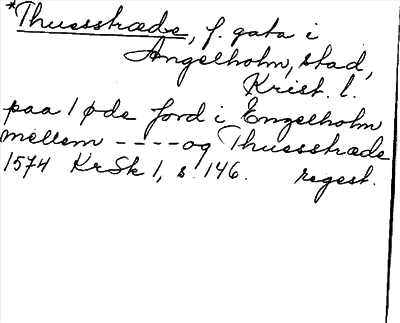 *Thuesstræde, f. gata i
Ängelholm, stad,
Krist. l.
paa 1 øde jord i Engelholm
mellem ---- og Thuesstræde
1574 KrSk 1, s. 146. regest.